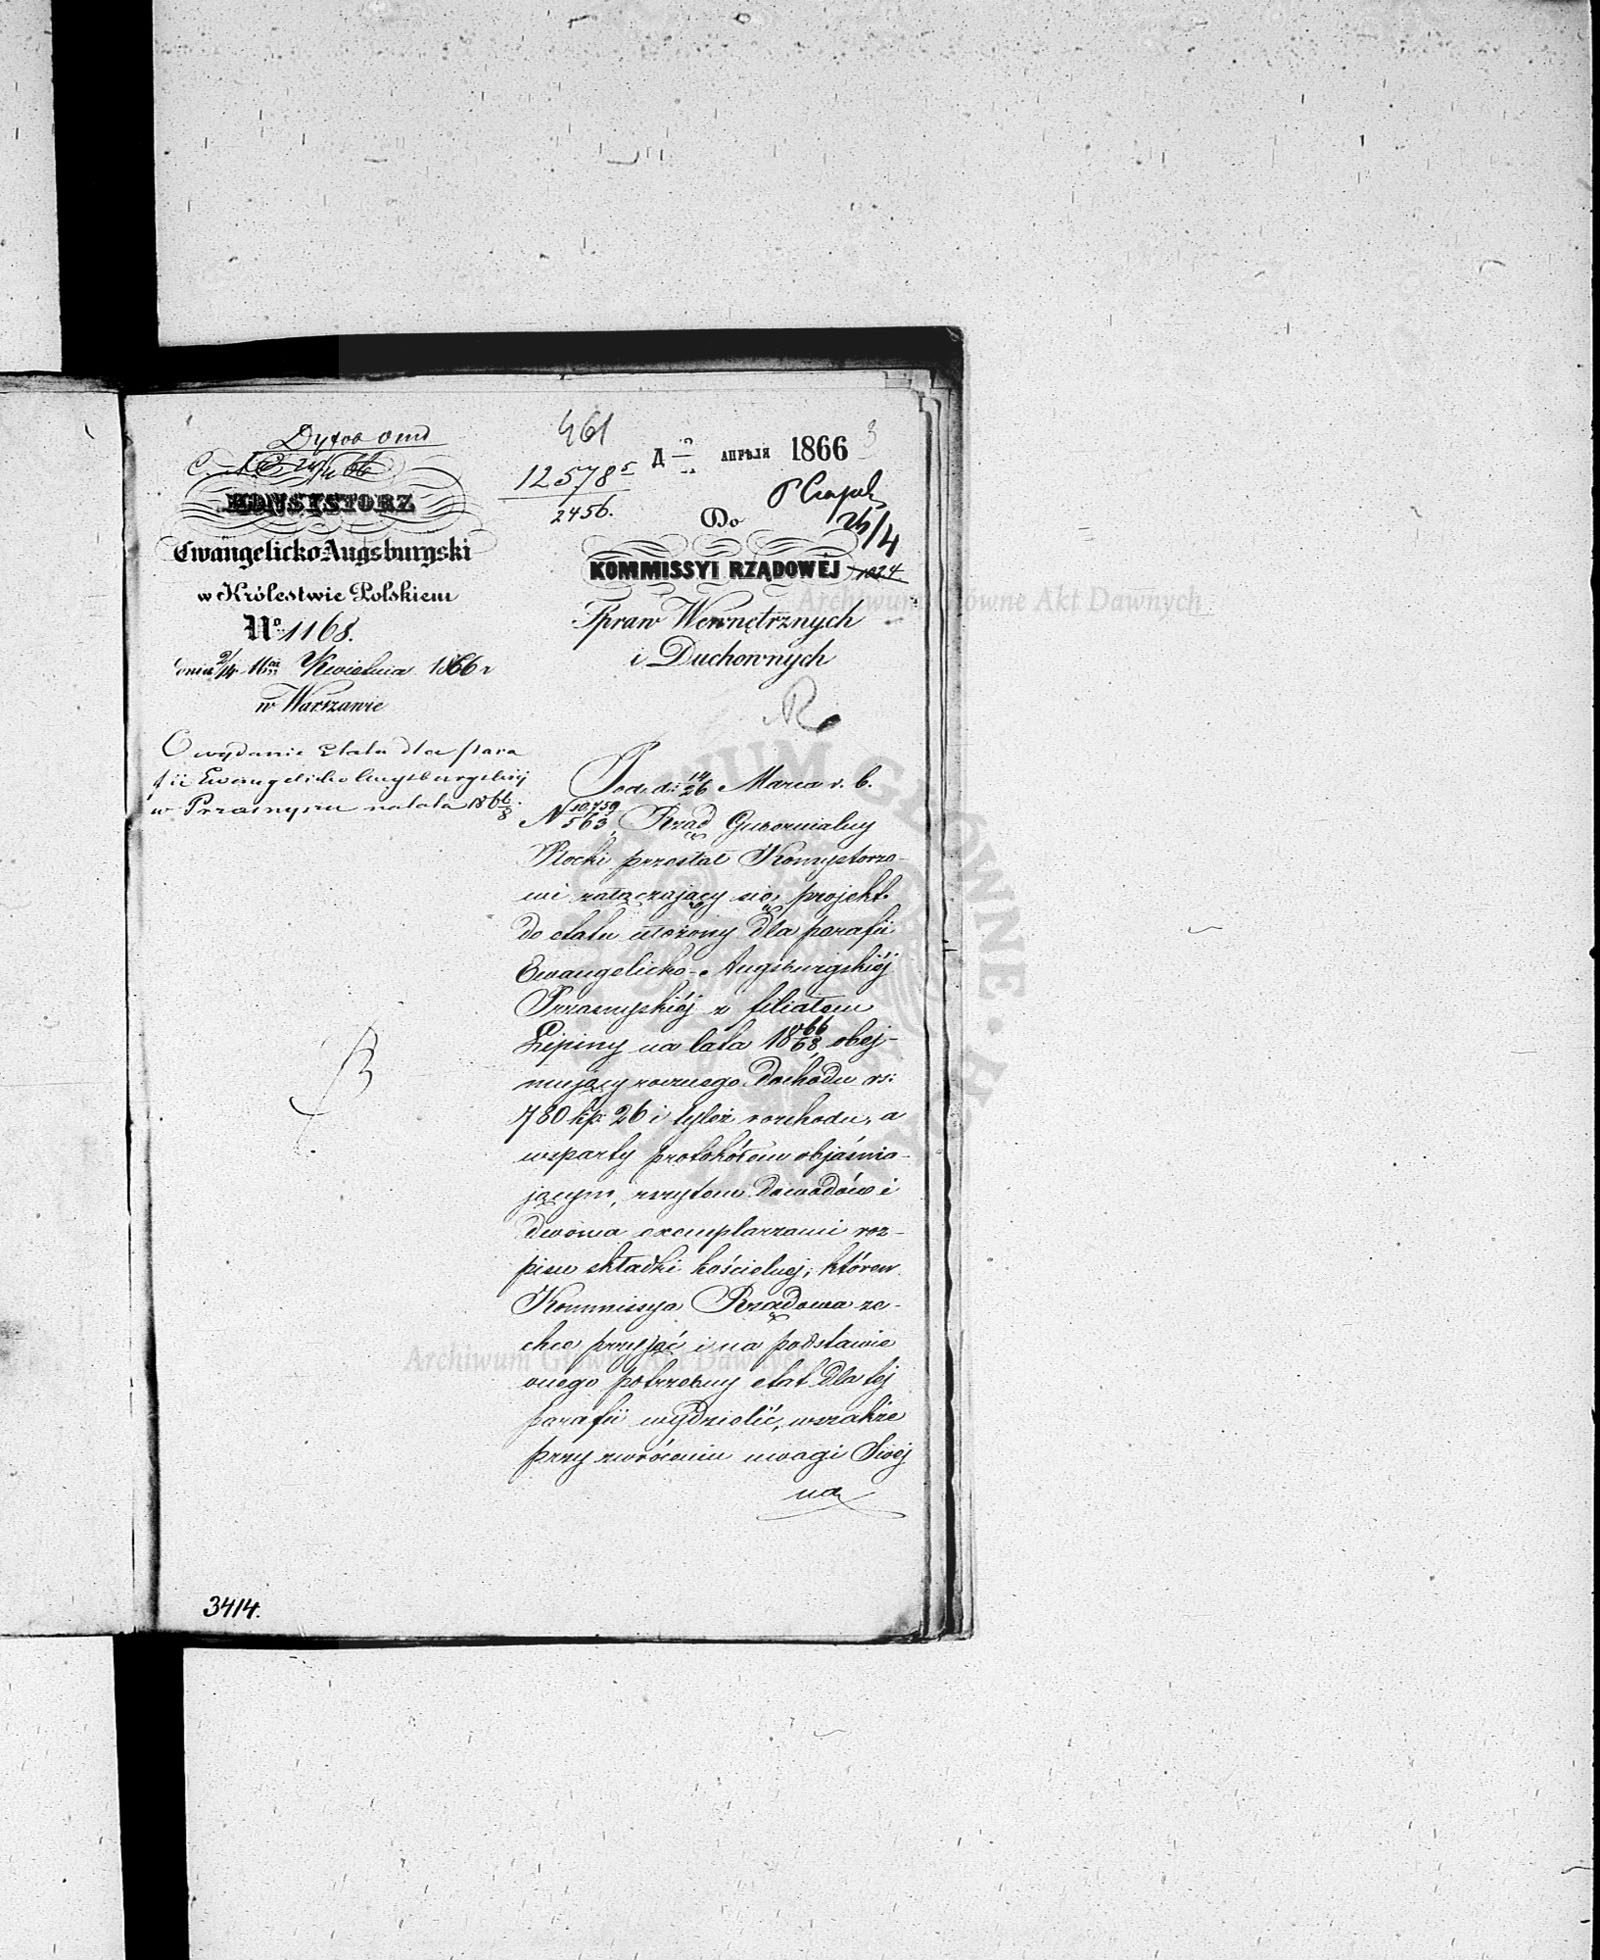 461
3
12578
2456.
АПРѢЛЯ 1866
24/4
KONSYSTORZ
Ewangelicko-Augsburgski
w Królestwie Polskiem
No 1168.
dnia 2/14 Kwietnia 1866 r
w Warszawie
O wydanie etatu dla para
fii Ewangelicko Augsburgskiej
w Przasnyszu na lata 1866/8.
Do
KOMMISSYI RZĄDOWÉJ
1024
Spraw Wewnętrznych
i Duchownych
Pod d: 14/26 Marca r. b.
N 10,759/563, Rząd Gubernialny
Płocki przesłał Konsystorzo-
wi załączający się projekt
do etatu ułożony dla parafii
Ewangelicko-Augsburgskiéj
Przasnyskiéj z filiałem
Lipiny na lata 1866/68 obej-
mujący rocznego dochodu rs:
780 kp: 26 i tyleż rozchodu, a
wsparty protokółem objaśnia-
jącym, zszytem dowodów i
dwoma exemplarzami roz-
pisu składki kościelnej, które
Kommissya Rządowa ze-
chce przyjąć i na podstawie
onego potrzebny etat dla tej
parafii wydzielić, wszakże
przy zwróceniu uwagi Swej
na
3414.
Archiwum Główne Akt Dawnych
Archiwum Główne Akt Dawnych